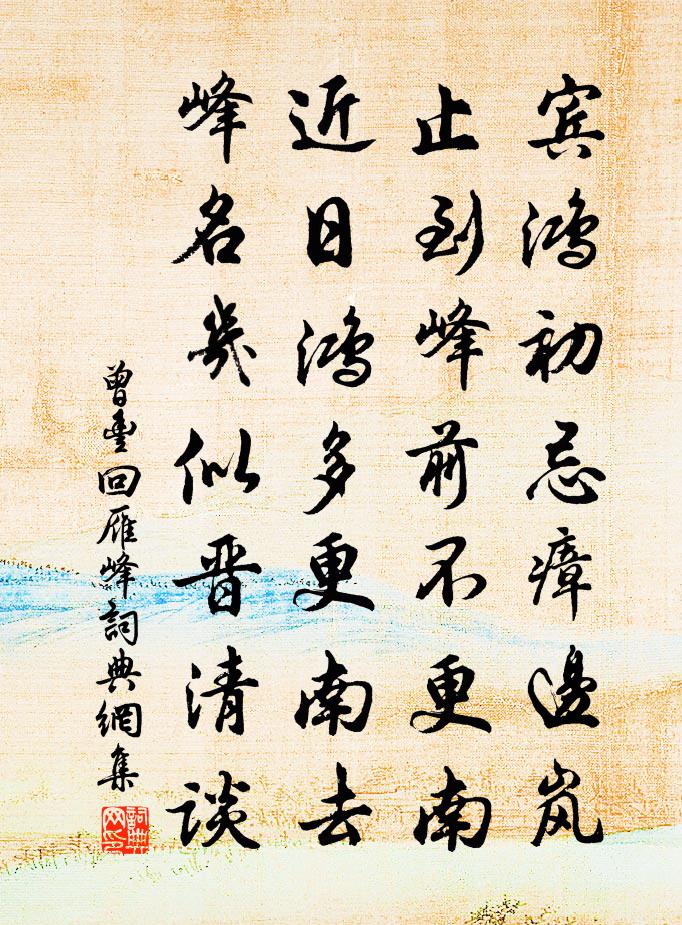 宾鸿初忌瘴邊岚
止到峰前不更南
近日鸿多更南去
峰名幾似晋清谈
曾豐回雁峰詞典網集
詞典网印